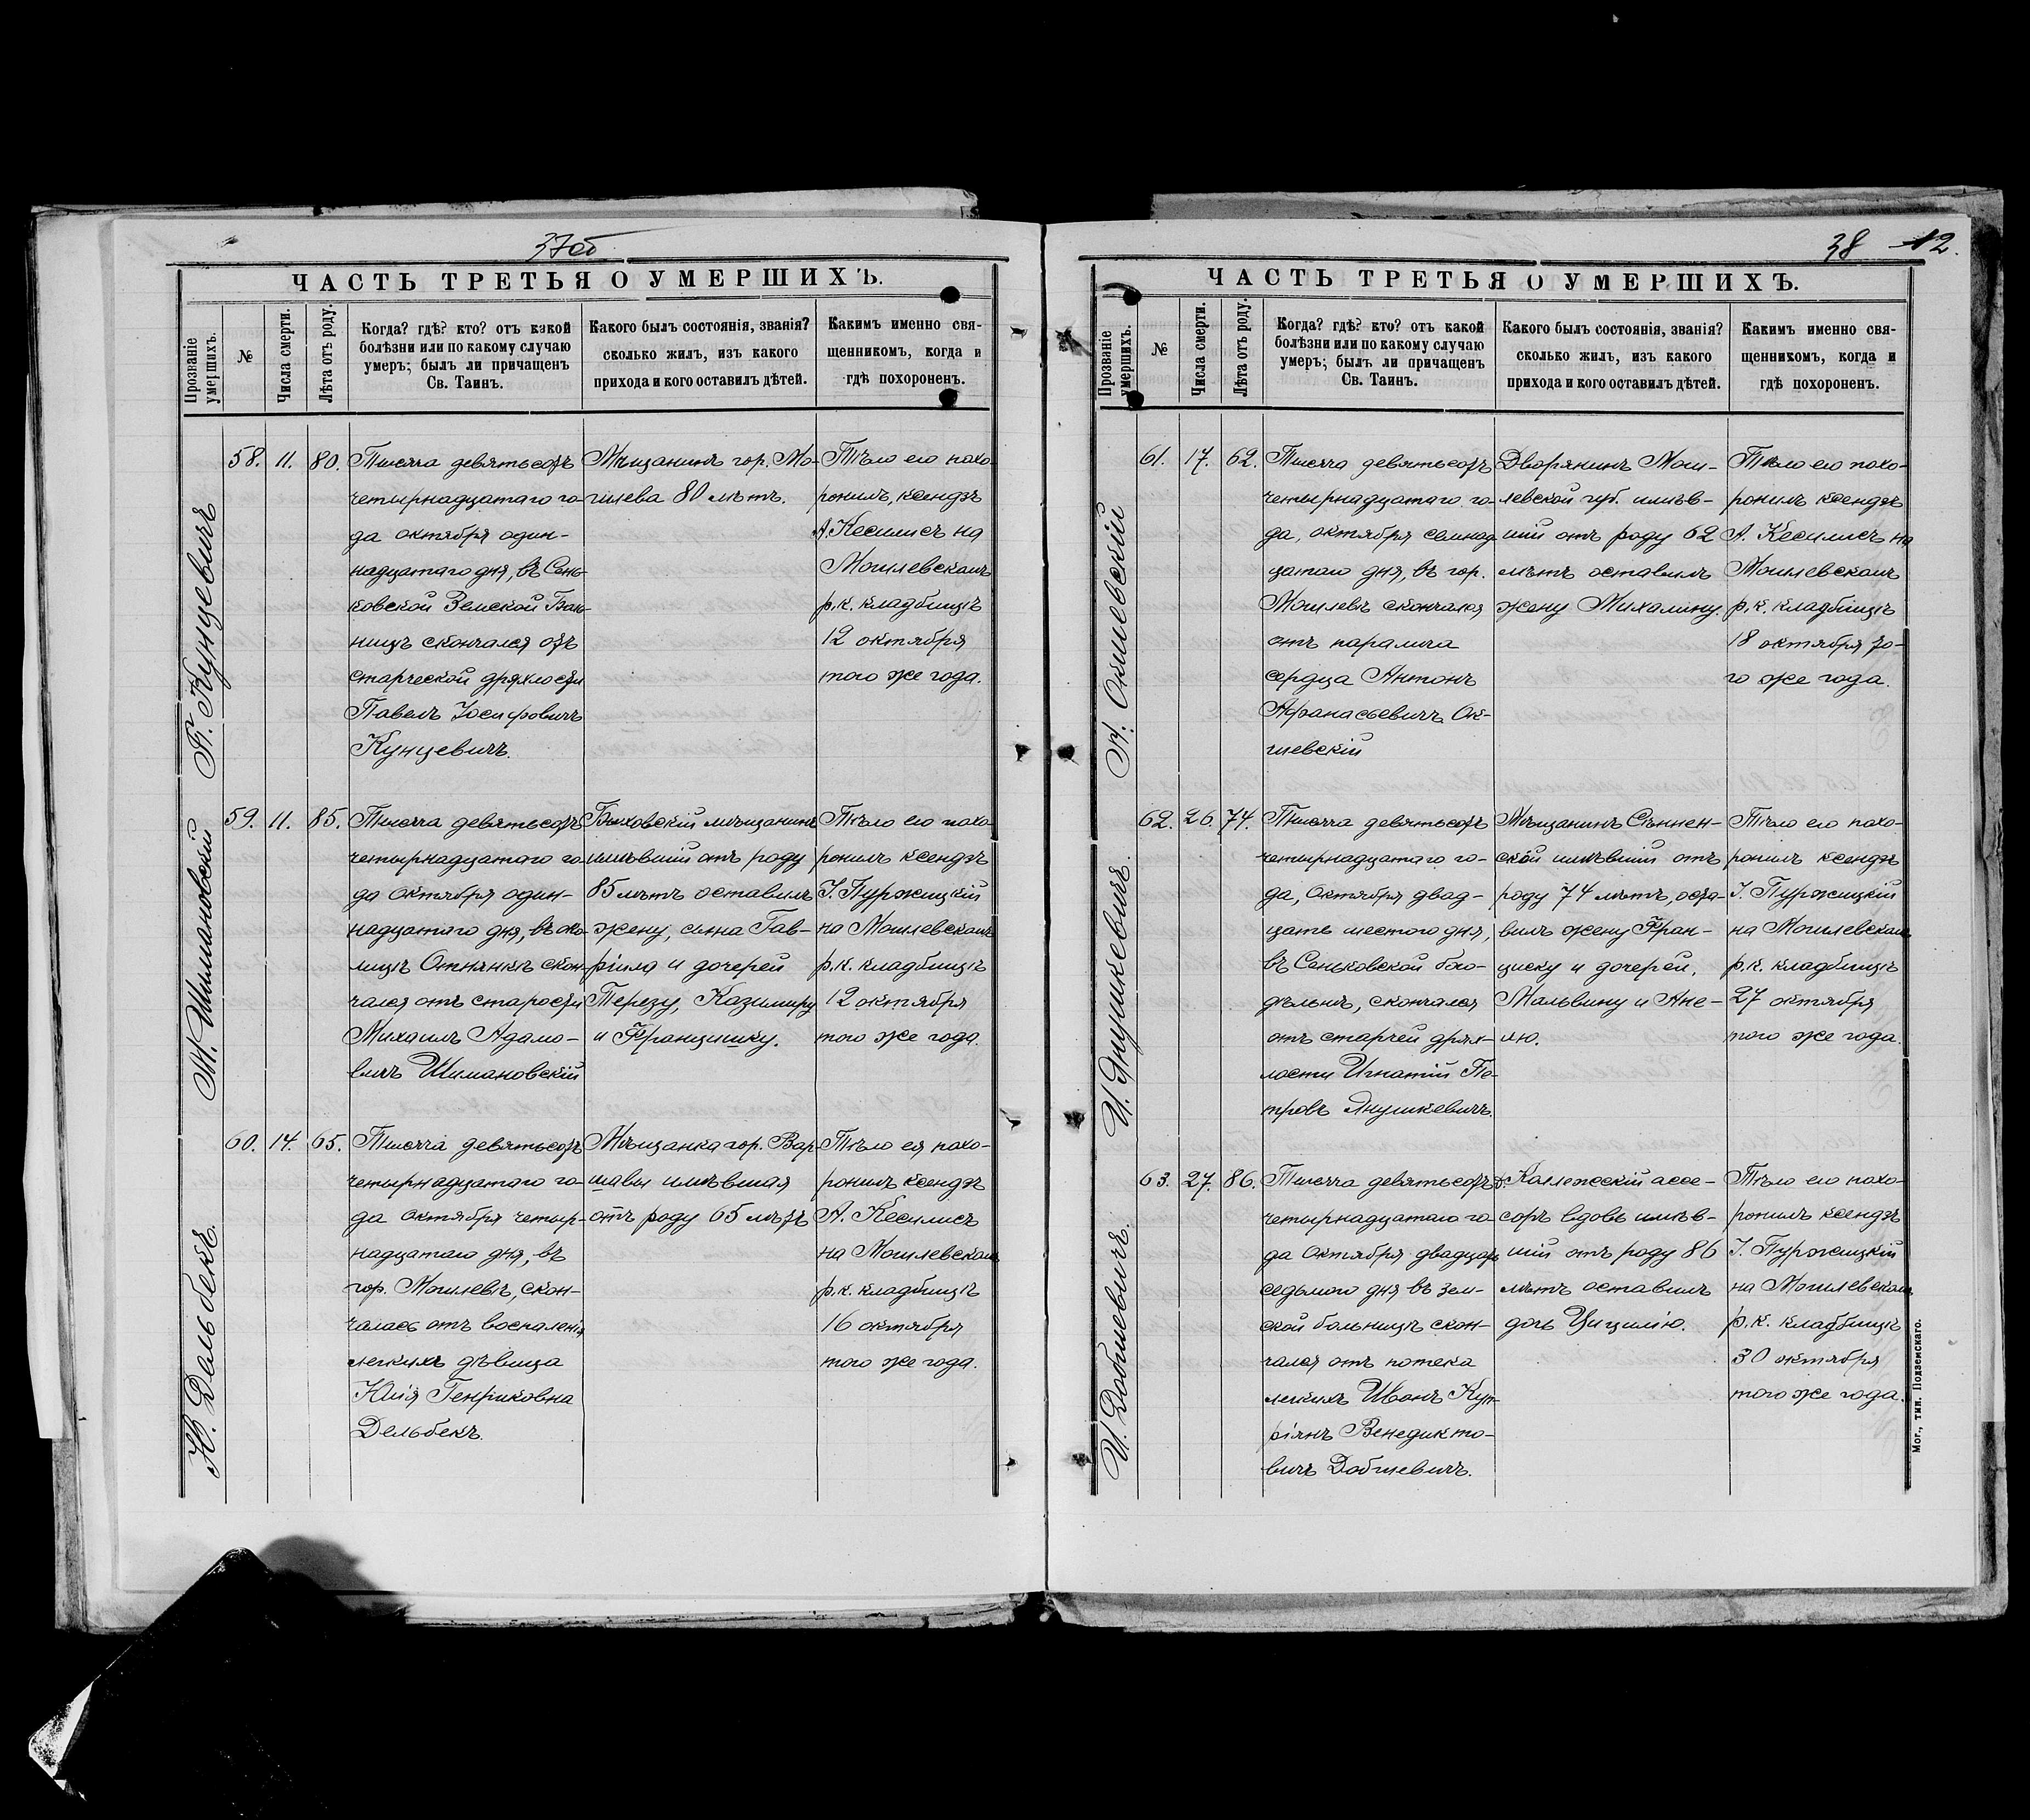 37об
ЧАСТЬ ТРЕТЬЯ О УМЕРШИХЪ.
Прозваніе умершихъ.
№
Числа смерти.
Лѣта отъ роду.
Когда? гдѣ? кто? отъ какой
болѣзни или по какому случаю
умеръ; былъ ли причащенъ
Св. Таинъ.
Какого былъ состоянія, званія?
сколько жилъ, изъ какого
прихода и кого оставилъ дѣтей.
Какимъ именно свя-
щенникомъ, когда и
гдѣ похороненъ.
П. Кунцевичъ
58. 11. 80.
Тысяча девятьсотъ
четырнадцатаго го-
да октября один-
надцатаго дня, въ Сень-
ковской Земской
скончался отъ
старческой дряхлости
Павелъ Іосифовичъ
Кунцевичъ.
Мѣщанинъ гор. Мо-
гилева 80 лѣтъ.
Тѣло его похо-
ронилъ ксендзъ
А. Кесилисъ на
Могилевскомъ
р.к. кладбищѣ
12 октября
того же года.
М. Шимановскій
59. 11. 85.
Тысяча девятьсотъ
четырнадцатаго го-
да октября один-
надцатаго дня, въ око-
лицѣ скон-
чался отъ старости
Михаилъ Адамо-
вичъ Шимановскій
Быховскій мѣщанинъ
имѣвшій отъ роду
85 лѣтъ оставилъ
жену, сына Гав-
ріила и дочерей
Терезу, Казимиру
и Францишку.
Тѣло его похо-
ронилъ ксендзъ
І. Пуржицкій
на Могилевскомъ
р.к. кладбищѣ
12 октября
того же года.
Ю. Дальбекъ.
60. 14. 65.
Тысяча девятьсотъ
четырнадцатаго го-
да октября четыр-
надцатаго дня, въ
гор. Могилевѣ, скон-
чалась отъ воспаленія
легкихъ дѣвица
Юлія Генриковна
Дельбекъ.
Мѣщанка гор. Вар-
шавы имѣвшая
отъ роду 65 лѣтъ
Тѣло ея похо-
ронилъ ксендзъ
А. Кесилисъ
на Могилевскомъ
р.к. кладбищѣ
16 октября
того же года.
38 12.
ЧАСТЬ ТРЕТЬЯ О УМЕРШИХЪ.
Прозваніе умершихъ.
№
Числа смерти.
Лѣта отъ роду.
Когда? гдѣ? кто? отъ какой
болѣзни или по какому случаю
умеръ; былъ ли причащенъ
Св. Таинъ.
Какого былъ состоянія, званія?
сколько жилъ, изъ какого
прихода и кого оставилъ дѣтей.
Какимъ именно свя-
щенникомъ, когда и
гдѣ похороненъ.
А. Окшевскій
61. 17. 62.
Тысяча девятьсотъ
четырнадцатаго го-
да, октября семнад-
цатаго дня, въ гор.
Могилевѣ скончался
отъ паралича
сердца Антонъ
Афанасьевичъ Ок-
шевскій
Дворянинъ Моги-
левской губ. имѣв-
шій отъ роду 62
лѣтъ оставилъ
жену Михалину.
Тѣло его похо-
ронилъ ксендзъ
А. Кесилисъ на
Могилевскомъ
р.к. кладбищѣ
18 октября то-
го же года.
И. Янушкевичъ.
62. 26. 74.
Тысяча девятьсотъ
четырнадцатаго го-
да, Октября двад-
цать шестого дня,
въ Сеньковской бого-
дѣльнѣ, скончался
отъ старчей дрях-
лости Игнатій Пе-
тровъ Янушкевичъ
Мѣщанинъ Сѣннен-
скій имѣвшій отъ
роду 74 лѣтъ, оста-
вилъ жену Фран-
циску и дочерей,
Мальвину и Ане-
лю.
Тѣло его похо-
ронилъ ксендзъ
І. Пуржицкій
на Могилевскомъ
р.к. кладбищѣ
27 октября
того же года.
И. Добшевичъ.
63. 27. 86.
Тысяча девятьсотъ
четырнадцатаго го-
да Октября двадцать
седьмого дня въ зем-
ской больницѣ скон-
чался отъ потека
легкихъ Иванъ Куп-
ріянъ Венедикто-
вичъ Добшевичъ.
Коллежскій ассе-
соръ вдовъ имѣв-
шій отъ роду 86
лѣтъ оставилъ
дочь Цицилію.
Тѣло его похо-
ронилъ ксендзъ
І. Пуржицкій
на Могилевскомъ
р.к. кладбищѣ
30 октября
того же года.
Мог., тип. Подземскаго.